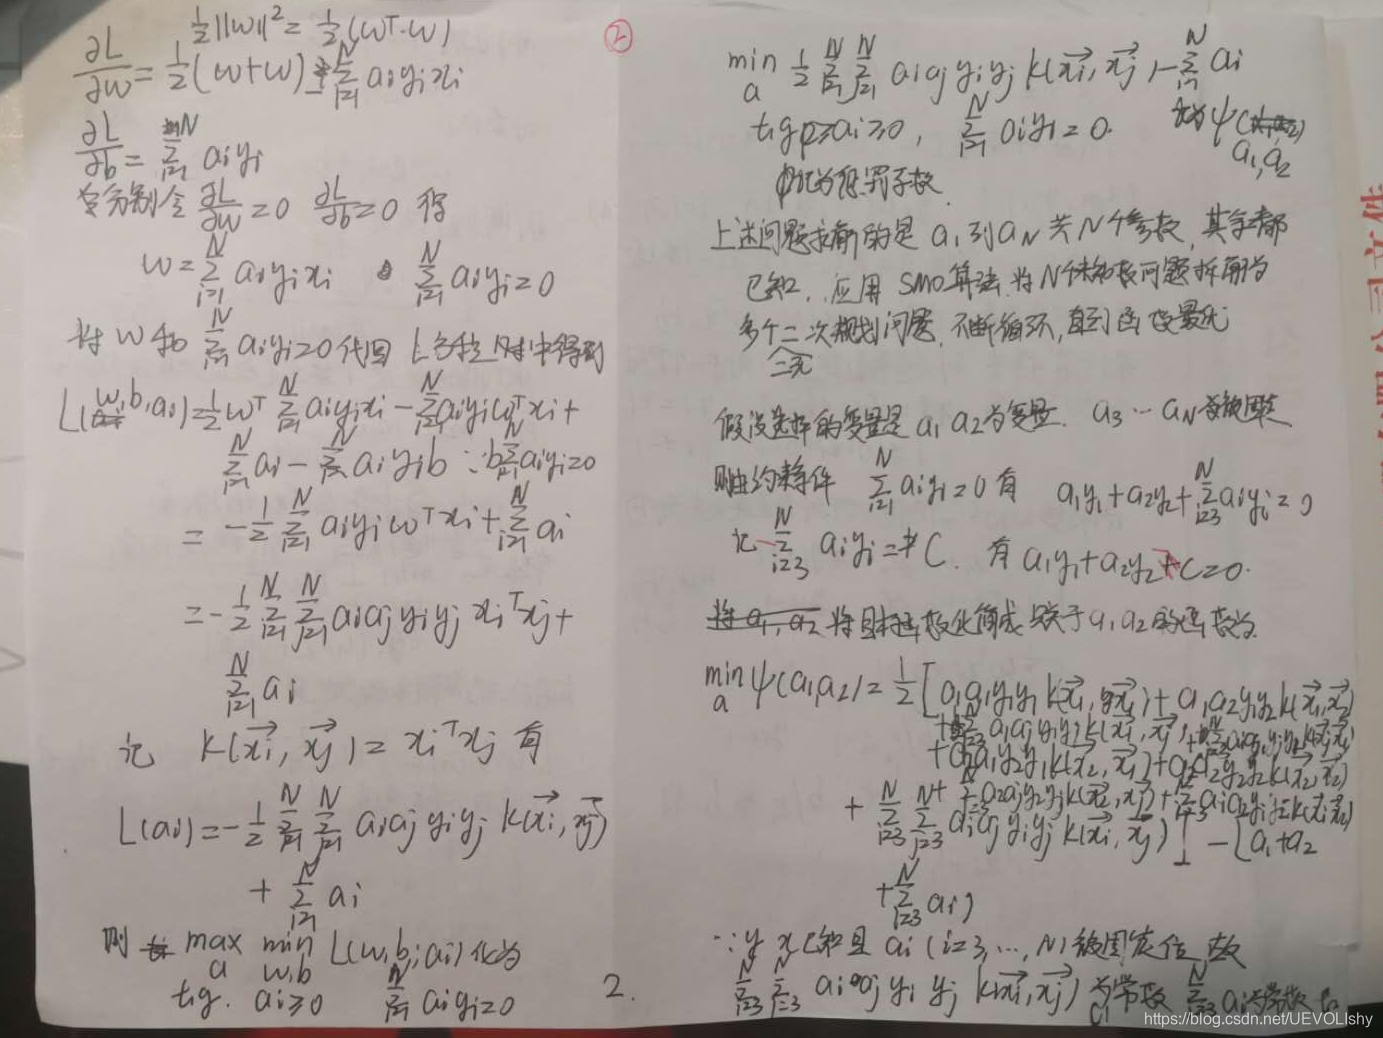 ½||w||² = ½(wᵀ·w)
∂L/∂w = ½(w+w) - Σᵢ₌₁ᴺ aᵢyᵢxᵢ
∂L/∂b = Σᵢ₌₁ᴺ aᵢyᵢ
分别令 ∂L/∂w = 0 ∂L/∂b = 0 得
w = Σᵢ₌₁ᴺ aᵢyᵢxᵢ Σᵢ₌₁ᴺ aᵢyᵢ = 0
将 w 和 Σᵢ₌₁ᴺ aᵢyᵢ = 0 代回 中得到
L(w,b,aᵢ) = ½wᵀ Σᵢ₌₁ᴺ aᵢyᵢxᵢ - Σᵢ₌₁ᴺ aᵢyᵢwᵀxᵢ +
Σᵢ₌₁ᴺ aᵢ - Σᵢ₌₁ᴺ aᵢyᵢb ∵ bΣᵢ₌₁ᴺ aᵢyᵢ = 0
= -½ Σᵢ₌₁ᴺ aᵢyᵢwᵀxᵢ + Σᵢ₌₁ᴺ aᵢ
= -½ Σᵢ₌₁ᴺ Σⱼ₌₁ᴺ aᵢaⱼyᵢyⱼxᵢᵀxⱼ +
Σᵢ₌₁ᴺ aᵢ
记 k(x⃗ᵢ, x⃗ⱼ) = xᵢᵀxⱼ 有
L(aᵢ) = -½ Σᵢ₌₁ᴺ Σⱼ₌₁ᴺ aᵢaⱼyᵢyⱼ k(x⃗ᵢ, x⃗ⱼ)
+ Σᵢ₌₁ᴺ aᵢ
则 max_a min_{w,b} L(w,b,aᵢ) 化为
t.g. aᵢ≥0 Σᵢ₌₁ᴺ aᵢyᵢ = 0
②
min_a ½ Σᵢ₌₁ᴺ Σⱼ₌₁ᴺ aᵢaⱼyᵢyⱼ k(x⃗ᵢ, x⃗ⱼ) - Σᵢ₌₁ᴺ aᵢ
t.g ≥aᵢ≥0, Σᵢ₌₁ᴺ aᵢyᵢ = 0.
ψ(
a₁,a₂
为惩罚系数
上述问题求解的是 a₁到aₙ共N个参数,其余都
已知,应用SMO算法,将N个 问题拆解为
多个二次规划问题,不断循环,直到函数最优
二元
假设选择的变量是 a₁ a₂为变量. a₃…aₙ 被固定
则由约束条件 Σᵢ₌₁ᴺ aᵢyᵢ = 0 有 a₁y₁+a₂y₂+Σᵢ₌₃ᴺ aᵢyᵢ = 0
记 -Σᵢ₌₃ᴺ aᵢyᵢ = C. 有 a₁y₁+a₂y₂ C=0.
将a₁,a₂ 将目标函数化简成关于a₁a₂的函数为
min_a ψ(a₁,a₂) = ½[a₁a₁y₁y₁k(x⃗₁,x⃗₁) + a₁a₂y₁y₂k(x⃗₁,x⃗₂)
+ a₂a₁y₂y₁k(x⃗₂,x⃗₁) + a₂a₂y₂y₂k(x⃗₂,x⃗₂)
+ Σᵢ₌₃ᴺ Σⱼ₌₃ᴺ aᵢaⱼyᵢyⱼ k(x⃗ᵢ,x⃗ⱼ)] - [a₁+a₂
+ Σᵢ₌₃ᴺ aᵢ]
∵ y x已知且 aᵢ (i=3,…,N) 被固定值
Σᵢ₌₃ᴺ Σⱼ₌₃ᴺ aᵢaⱼyᵢyⱼ k(x⃗ᵢ,x⃗ⱼ) 为常数 Σᵢ₌₃ᴺ aᵢ为常数
2.
https://blog.csdn.net/UEVOLIshy